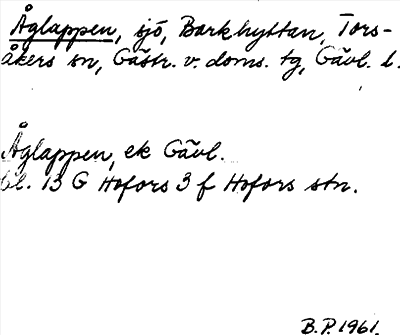 Åglappen, sjö, Barkhyttan, Tors-
åkers sn, Gästr. v. doms. tg, Gävl. l.
Åglappen, ek Gävl.
bl. 13 G Hofors 3 f Hofors stn.
B.P. 1961.